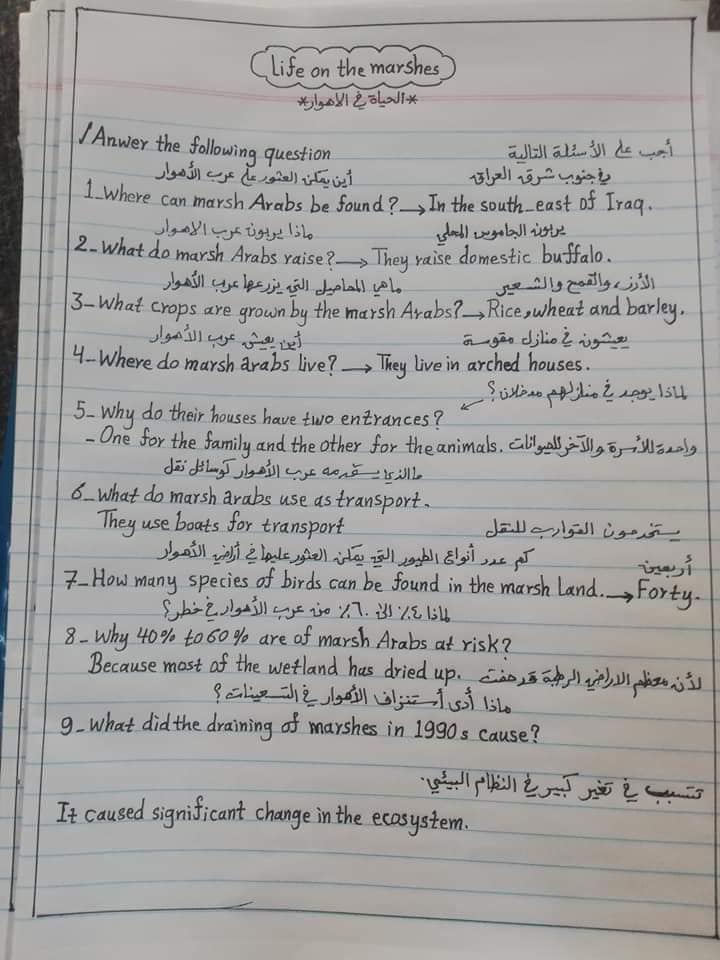 Life on the marshes
*الحياة في الاهوار*
/Anwer the following question أجب على الأسئلة التالية
أين يمكن العثور على عرب الأهوار في جنوب شرق العراق
1_Where can marsh Arabs be found? → In the south_east of Iraq.
ماذا يربون عرب الاهوار يربون الجاموس المحلي
2_What do marsh Arabs raise? → They raise domestic buffalo.
ما هي المحاصيل التي يزرعها عرب الأهوار الأرز، والقمح والشعير
3_What crops are grown by the marsh Arabs? → Rice, wheat and barley.
أين يعيش عرب الأهوار يعيشون في منازل مقوسة
4_Where do marsh arabs live? → They live in arched houses.
لماذا يوجد في منازلهم مدخلان؟
5_Why do their houses have two entrances?
_One for the family and the other for the animals. واحدة للأسرة والآخر للحيوانات
ما الذي يستخدمه عرب الأهوار كوسائل نقل
6_What do marsh arabs use as transport.
They use boats for transport يستخدمون القوارب للنقل
كم عدد أنواع الطيور التي يمكن العثور عليها في أراضي الأهوار أربعين
7_How many species of birds can be found in the marsh Land. → Forty.
لماذا ٤٪ الى ٦٠٪ من عرب الأهوار في خطر؟
8_Why 40% to 60% are of marsh Arabs at risk?
Because most of the wetland has dried up. لأن معظم الاراضي الرطبة قد جفت
ماذا أدى أستنزاف الأهوار في التسعينات؟
9_What did the draining of marshes in 1990s cause?
تتسبب في تغير كبير في النظام البيئي.
It caused significant change in the ecosystem.